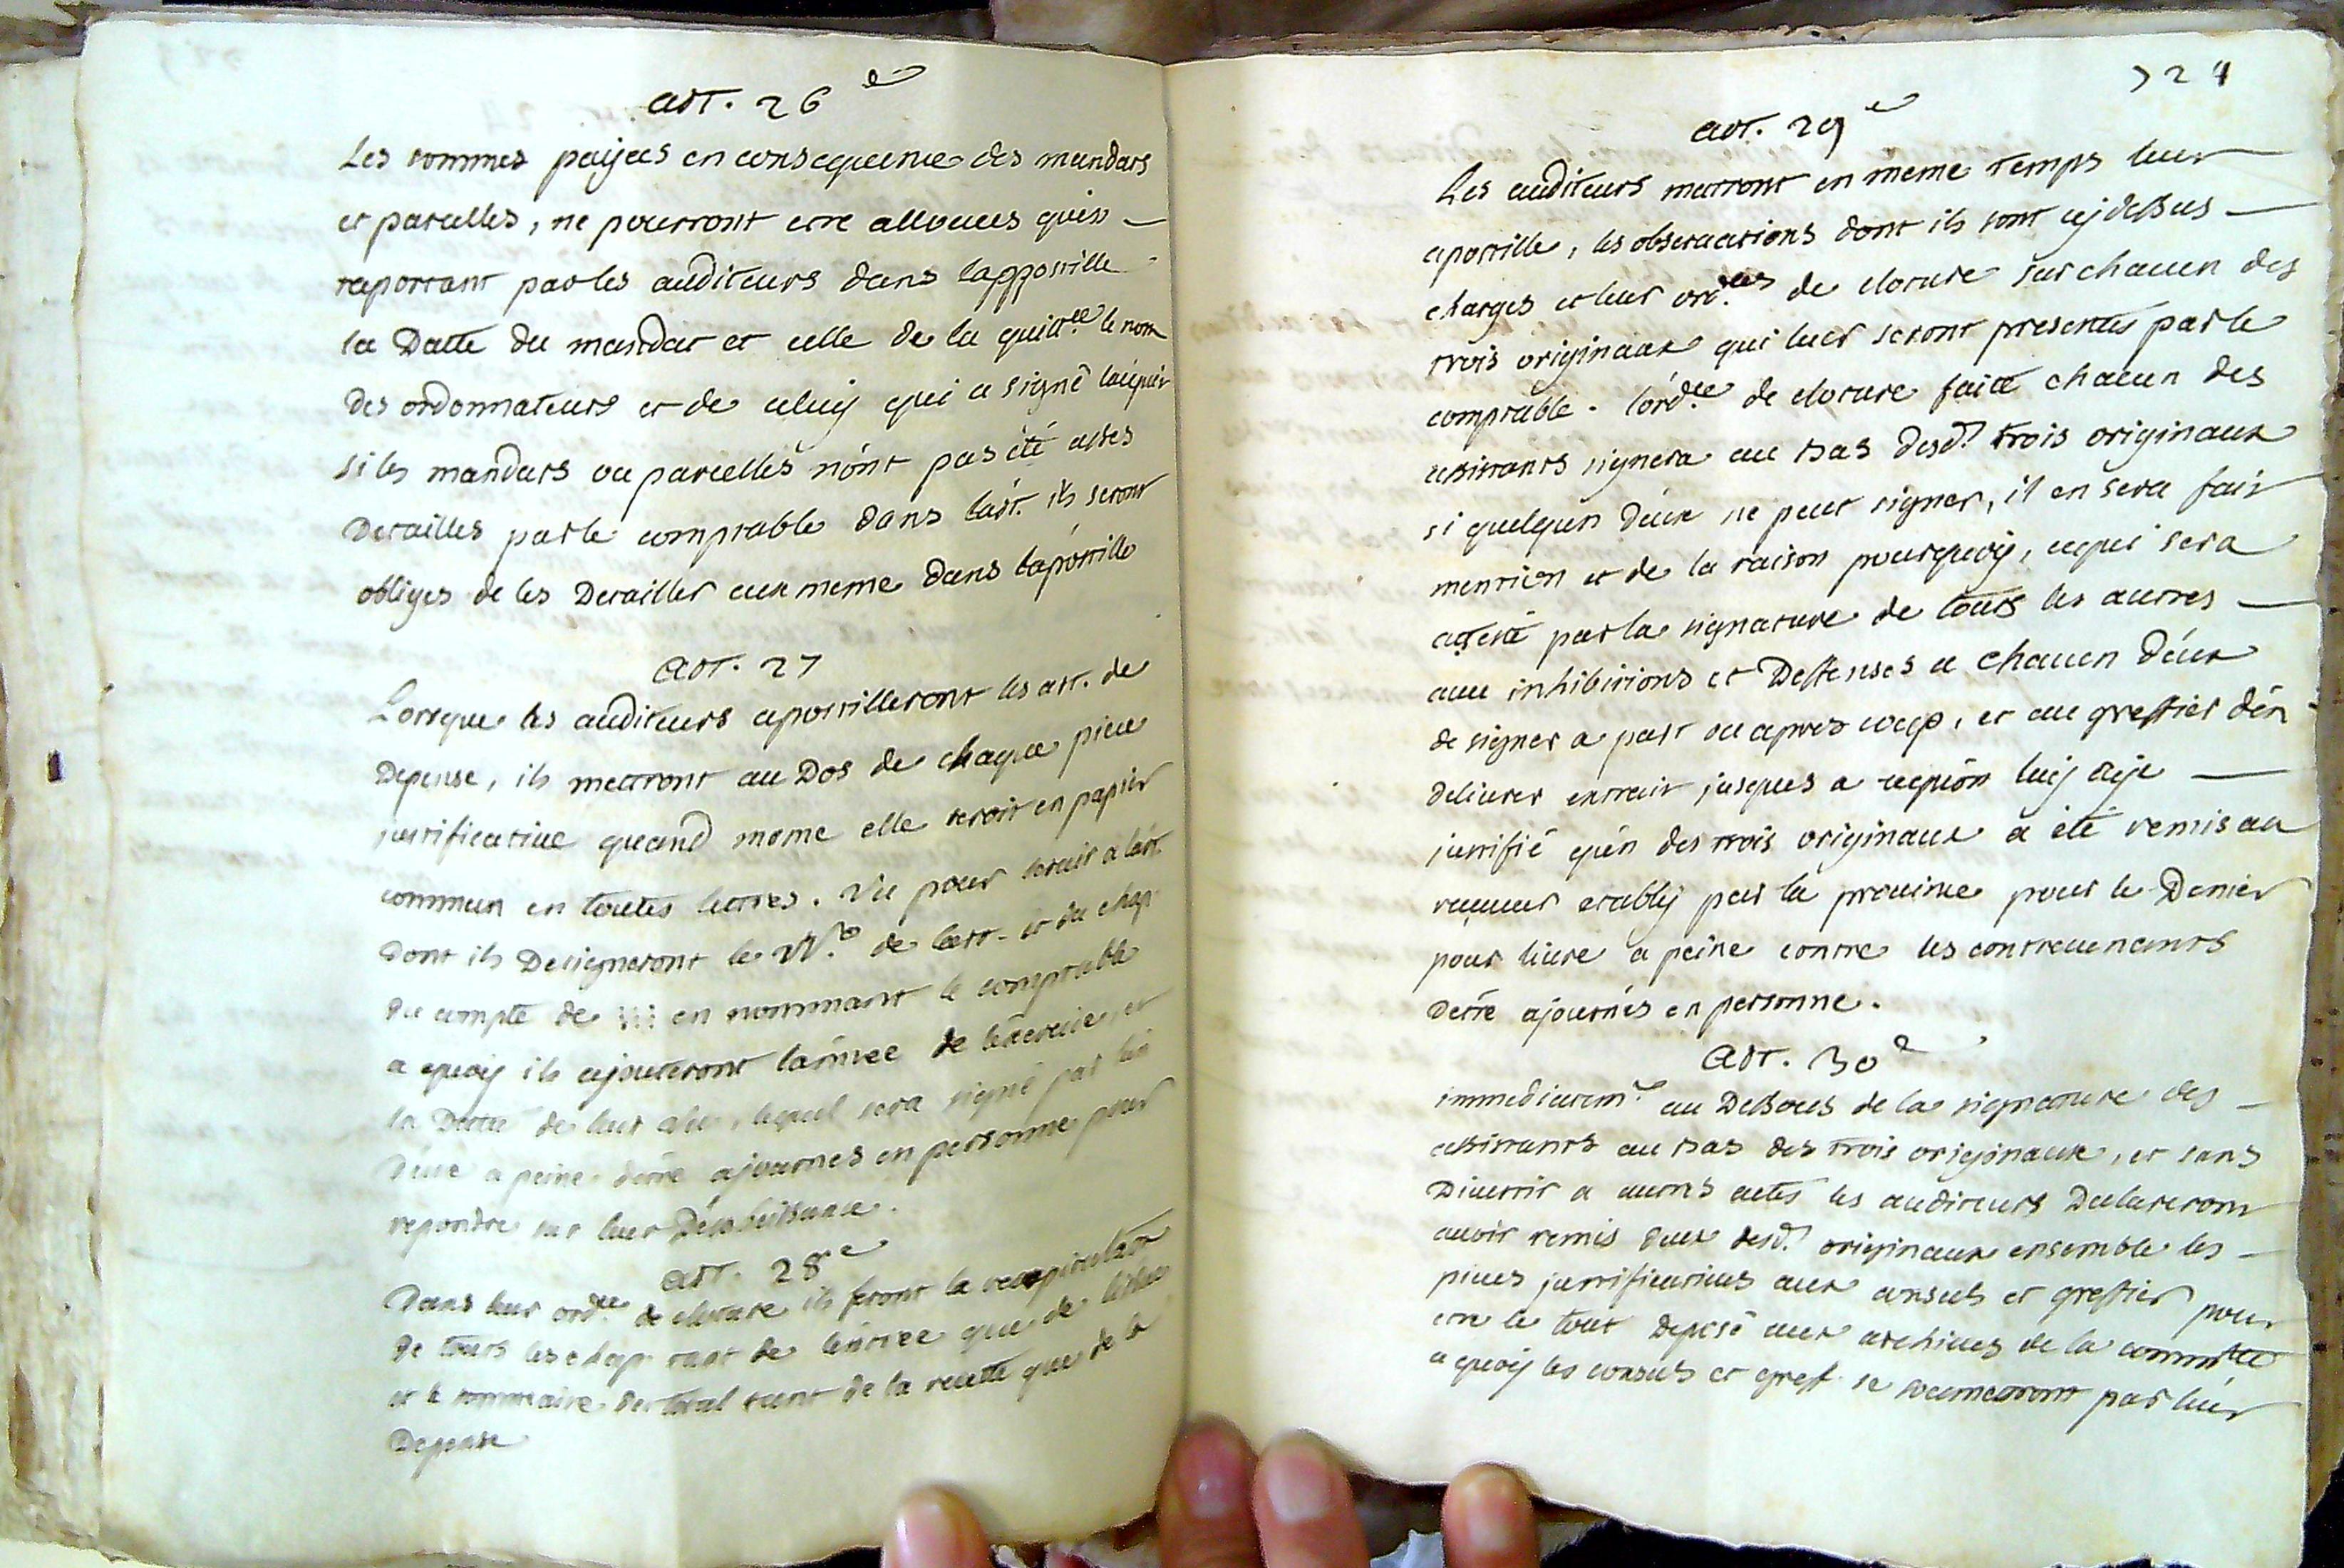 art. 26e
Les sommes payees en consequence des mandats
et parcelles, ne pourront etre allouees qu'en
raportant par les auditeurs dans lappostille
la Datte du mandat et celle de la quittce. le nom
des ordonnateurs et de celuy qui a signé l'aquit
si les mandats ou parcelles n'ont pas été asses
Detailles par le comptable dans l'art. ils seront
obliges de les Detailler eux meme dans l'apostille
art. 27
Lorsque les auditeurs apostilleront les art. de
Depense, ils mettront au Dos de chaque piece
justificative quand meme elle seroit en papier
commun en toutes lettres. Vu pour servir a l'art.
dont ils Designeront le No. de l'art. et du chap.
du compte de en nommant le comptable
a quoy ils ajouteront l'année de l'exercice, et
la Datte de leur Vu, lequel sera signé par les
Deux a peine d'etre ajournes en personne pour
repondre sur leur Desobeissance.
art. 28e
Dans leur ordce. de cloture ils feront la recapitulaon
de touts les chap. tant de l'entree que de l'issue
et le sommaire des total tant de la recette que de la
Depense
724
art. 29e
Les auditeurs mettront en meme temps leur
apostille, les observations dont ils sont cy dessus
charges et leur ordces. de cloture sur chacun des
trois originaux qui leur seront presentés par le
comptable. l'ordce. de cloture faitte chacun des
assistants signera au bas desd. trois originaux
si quelqu'un d'eux ne peut signer, il en sera fait
mention et de la raison pourquoy, ce qui sera
attesté par la signature de touts les autres
avec inhibitions et Deffenses a chacun d'eux
de signer a part ou apres coup, et au greffier d'en
delivrer extrait jusques a ce qu'on luy aye
justifié qu'un des trois originaux a été remis au
receveur etably par la province pour le Denier
pour livre a peine contre les contrevenants
d'etre ajournés en personne.
art. 30e
immediatemt. au Dessous de la signature des
assistants au bas des trois originaux, et sans
Divertir a autres actes les auditeurs Declareront
avoir remis deux desd. originaux ensemble les
pieces justificatives aux consuls et greffier pour
etre le tout deposé aux archives de la commté
a quoy les consuls et gref. se soumettront par leur